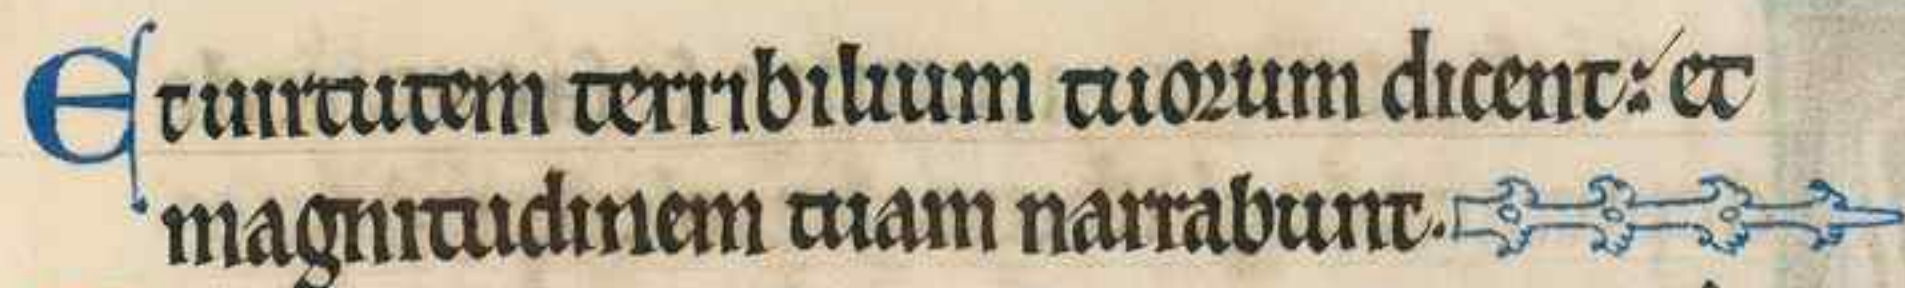 Et uirtutem terribilium tuorum dicent: et
magnitudinem tuam narrabunt.